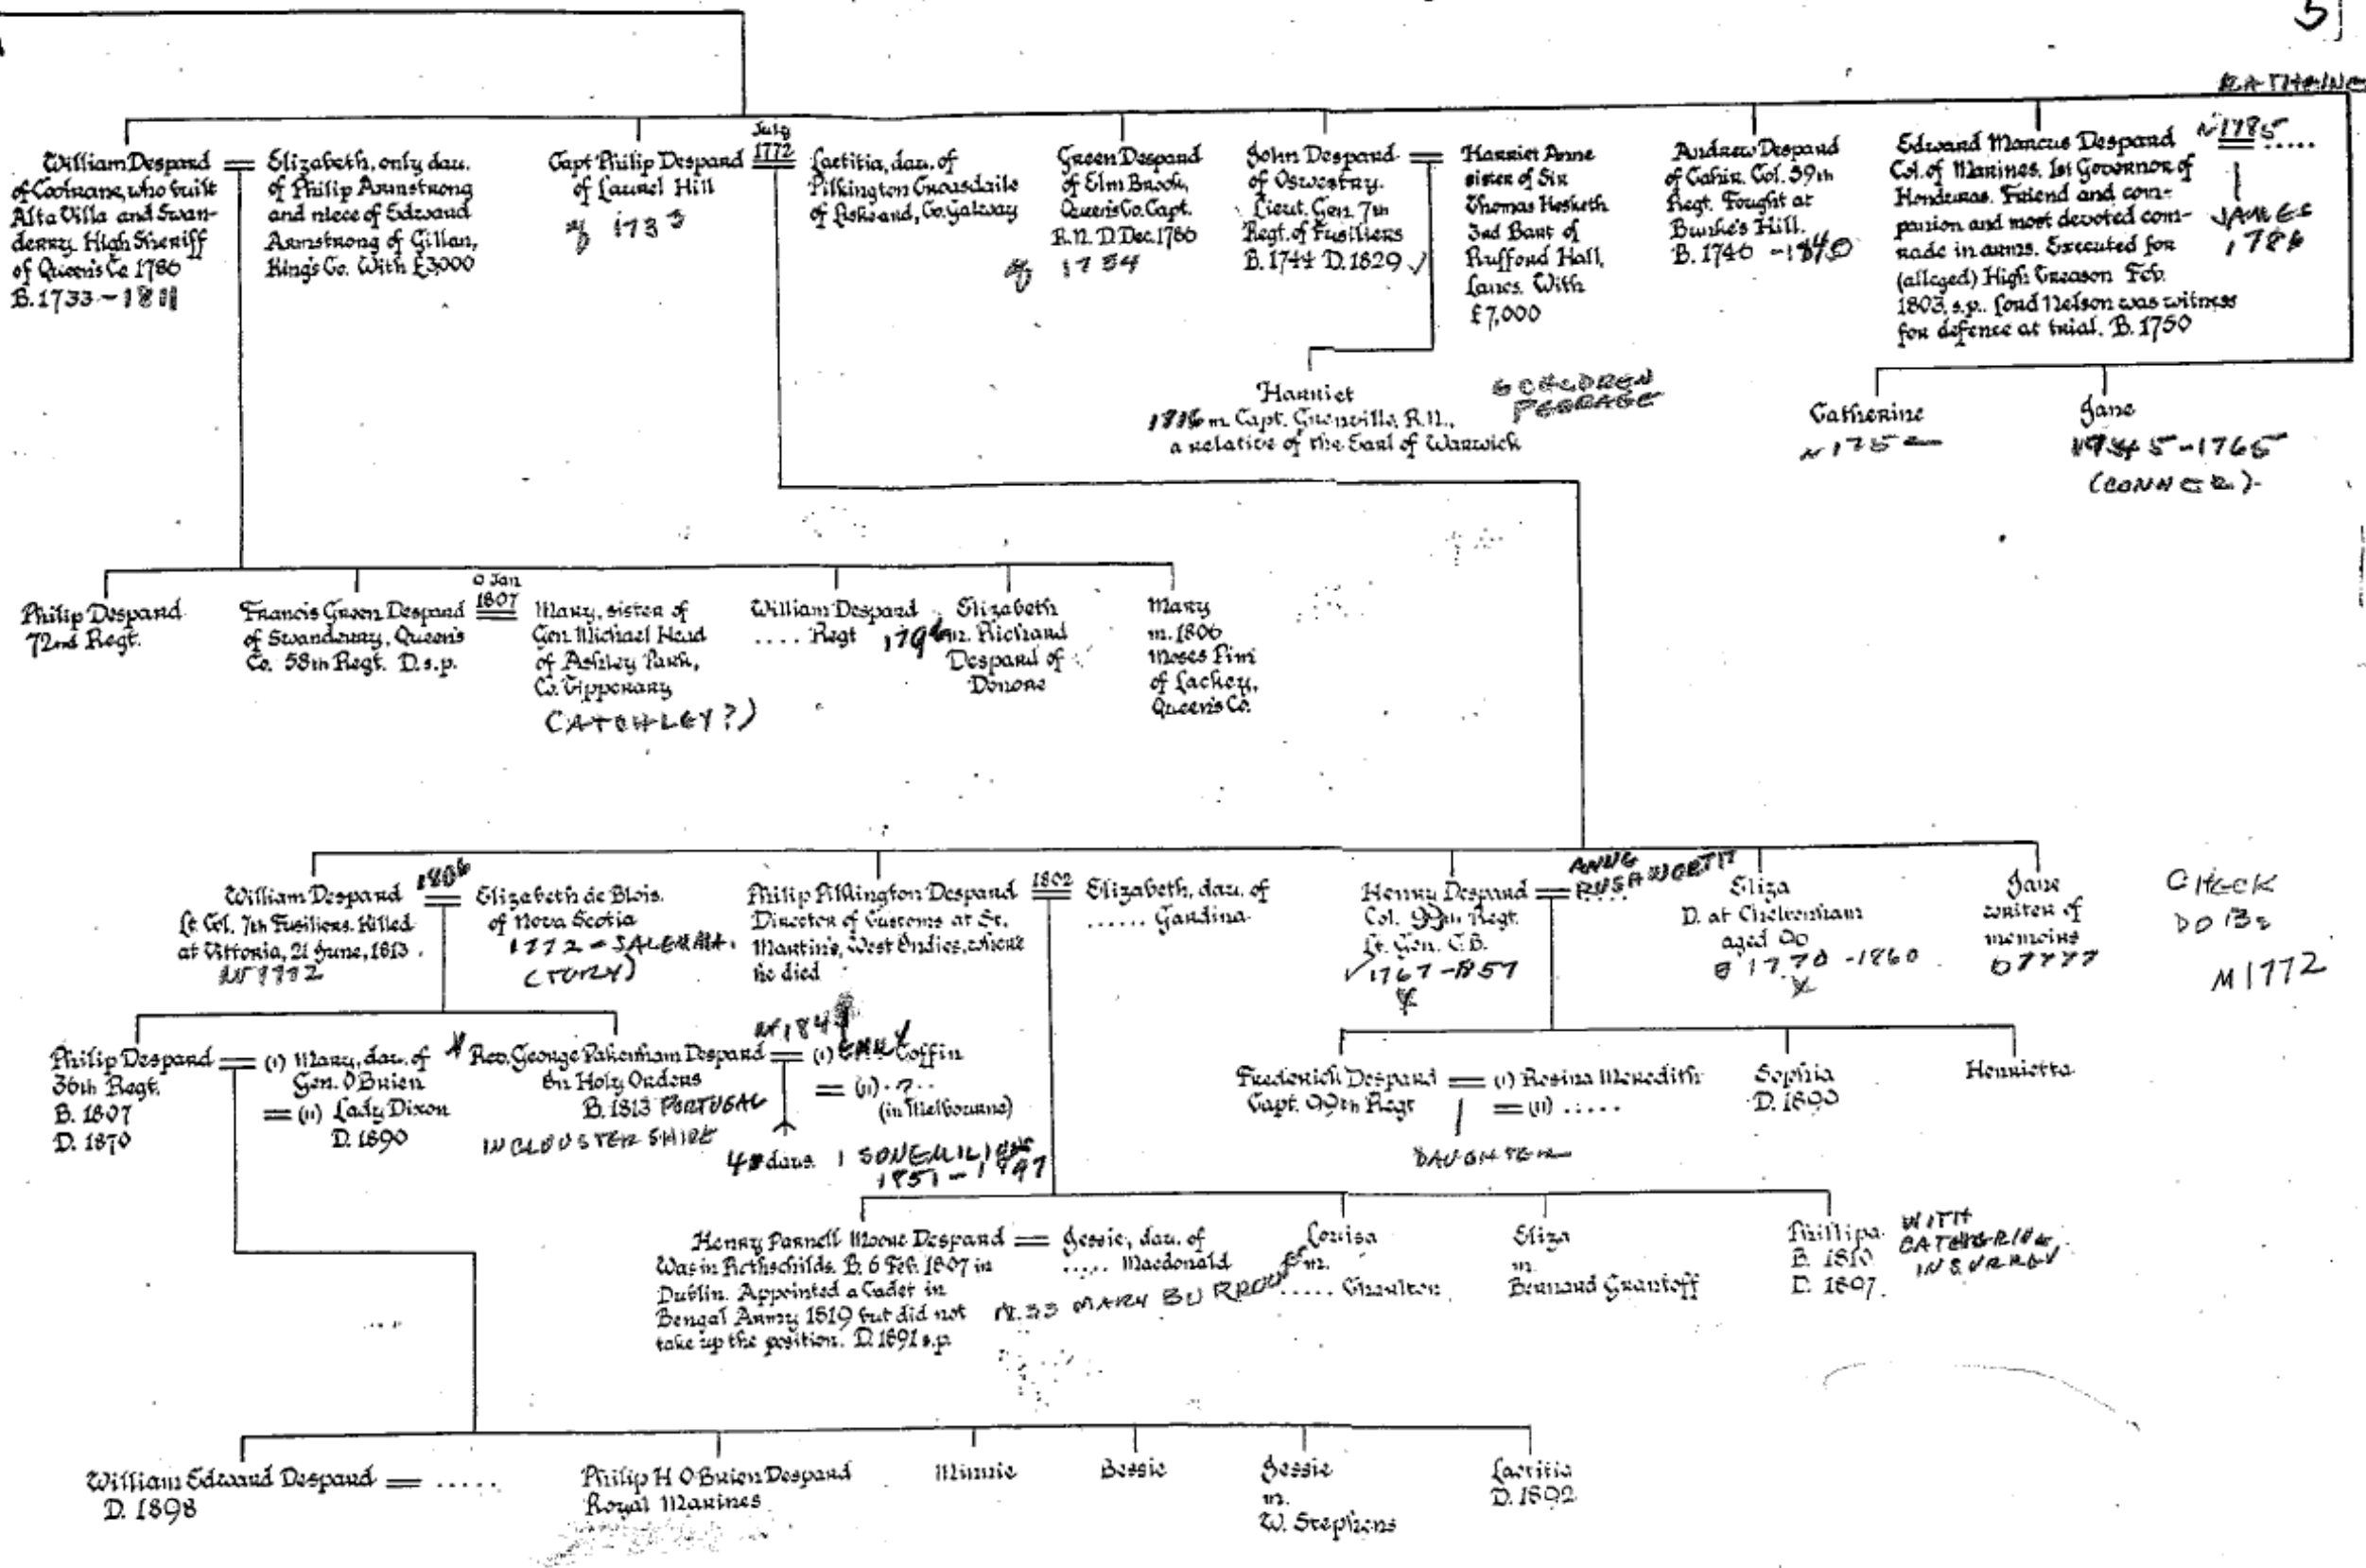 5
William Despard
of Coolrane, who built
Alta Villa and Swan-
derry. High Sheriff
of Queen's Co. 1786
B. 1733 - 1811
Elizabeth, only dau.
of Philip Armstrong
and niece of Edward
Armstrong of Gillan,
King's Co. With £3,000
Capt Philip Despard
of Laurel Hill
1733
July
1772
Laetitia, dau. of
Pilkington Croasdaile
of Co. Galway
Green Despard
of Elm Brook,
Queen's Co. Capt.
R.N. D. Dec. 1786
1734
John Despard
of Oswestry.
Lieut. Gen. 7th
Regt. of Fusiliers
B. 1744 D. 1829 ✓
Harriet Anne
sister of Sir
Thomas Hesketh
3rd Bart of
Rufford Hall,
Lancs. With
£7,000
Andrew Despard
of Cahir. Col. 59th
Regt. Fought at
Bunke's Hill.
B. 1746 - 1840
Edward Marcus Despard
Col. of Marines. 1st Governor of
Honduras. Friend and com-
panion and most devoted com-
rade in arms. Executed for
(alleged) High Treason Feb.
1803, s.p. Lord Nelson was witness
for defence at trial. B. 1750
1785
.....
JAMES
1786
Harriet
m. Capt. Grenville, R.N.,
a relative of the Earl of Warwick
6 CHILDREN
PEERAGE
Catherine
Jane
- 1765
(CONNER)
Philip Despard
72nd Regt.
Francis Green Despard
of Swanderry, Queen's
Co. 58th Regt. D.s.p.
Jan
1807
Mary, sister of
Gen. Michael Head
of Ashley Park,
Co. Tipperary
(ATCHLEY?)
William Despard
.... Regt
Elizabeth
m. Richard
Despard of
Donore
Mary
m. 1806
Moses Pim
of Lackey,
Queen's Co.
William Despard
Lt. Col. 7th Fusiliers. Killed
at Vittoria, 21 June, 1813.
1806
Elizabeth de Blois.
of Nova Scotia
1772 - SALEM MA.
(TORY)
Philip Pilkington Despard
Director of Customs at St.
Martin's, West Indies, where
he died
1802
Elizabeth, dau. of
...... Gardina
Henry Despard
Col. 99th Regt.
Lt. Gen. C.B.
✓ 1767 - 1857
ANNE
Eliza
D. at Cheltenham
aged 90
B 1770 - 1860
Jane
writer of
memoirs
CHECK
DOBs
M 1772
Philip Despard
36th Regt.
B. 1807
D. 1870
(i) Mary, dau. of
Gen. O'Brien
(ii) Lady Dixon
D. 1890
Rev. George Pakenham Despard
In Holy Orders
B. 1813 PORTUGAL
IN GLOUSTERSHIRE
(i) Coffin
(ii) . ? . .
(in Melbourne)
4 daus. 1 SON
1851 -
Frederick Despard
Capt. 99th Regt
(i) Rosina Meredith
(ii) .....
DAUGHTER
Sophia
D. 1890
Henrietta
Henry Parnell Moore Despard
Was in Rothschilds. B. 6 Feb. 1807 in
Dublin. Appointed a Cadet in
Bengal Army 1819 but did not
take up the position. D. 1891 s.p.
Jessie, dau. of
..... Macdonald
MARY BURROUGHS
Louisa
m.
..... Charlton
Eliza
m.
Bernard Grantoff
Phillipa.
B. 1810
D. 1897.
WITH
CATHERINE
IN SURREY
William Edward Despard = .....
D. 1898
Philip H O'Brien Despard
Royal Marines
Minnie
Bessie
Jessie
m.
W. Stephens
Laetitia
D. 1892